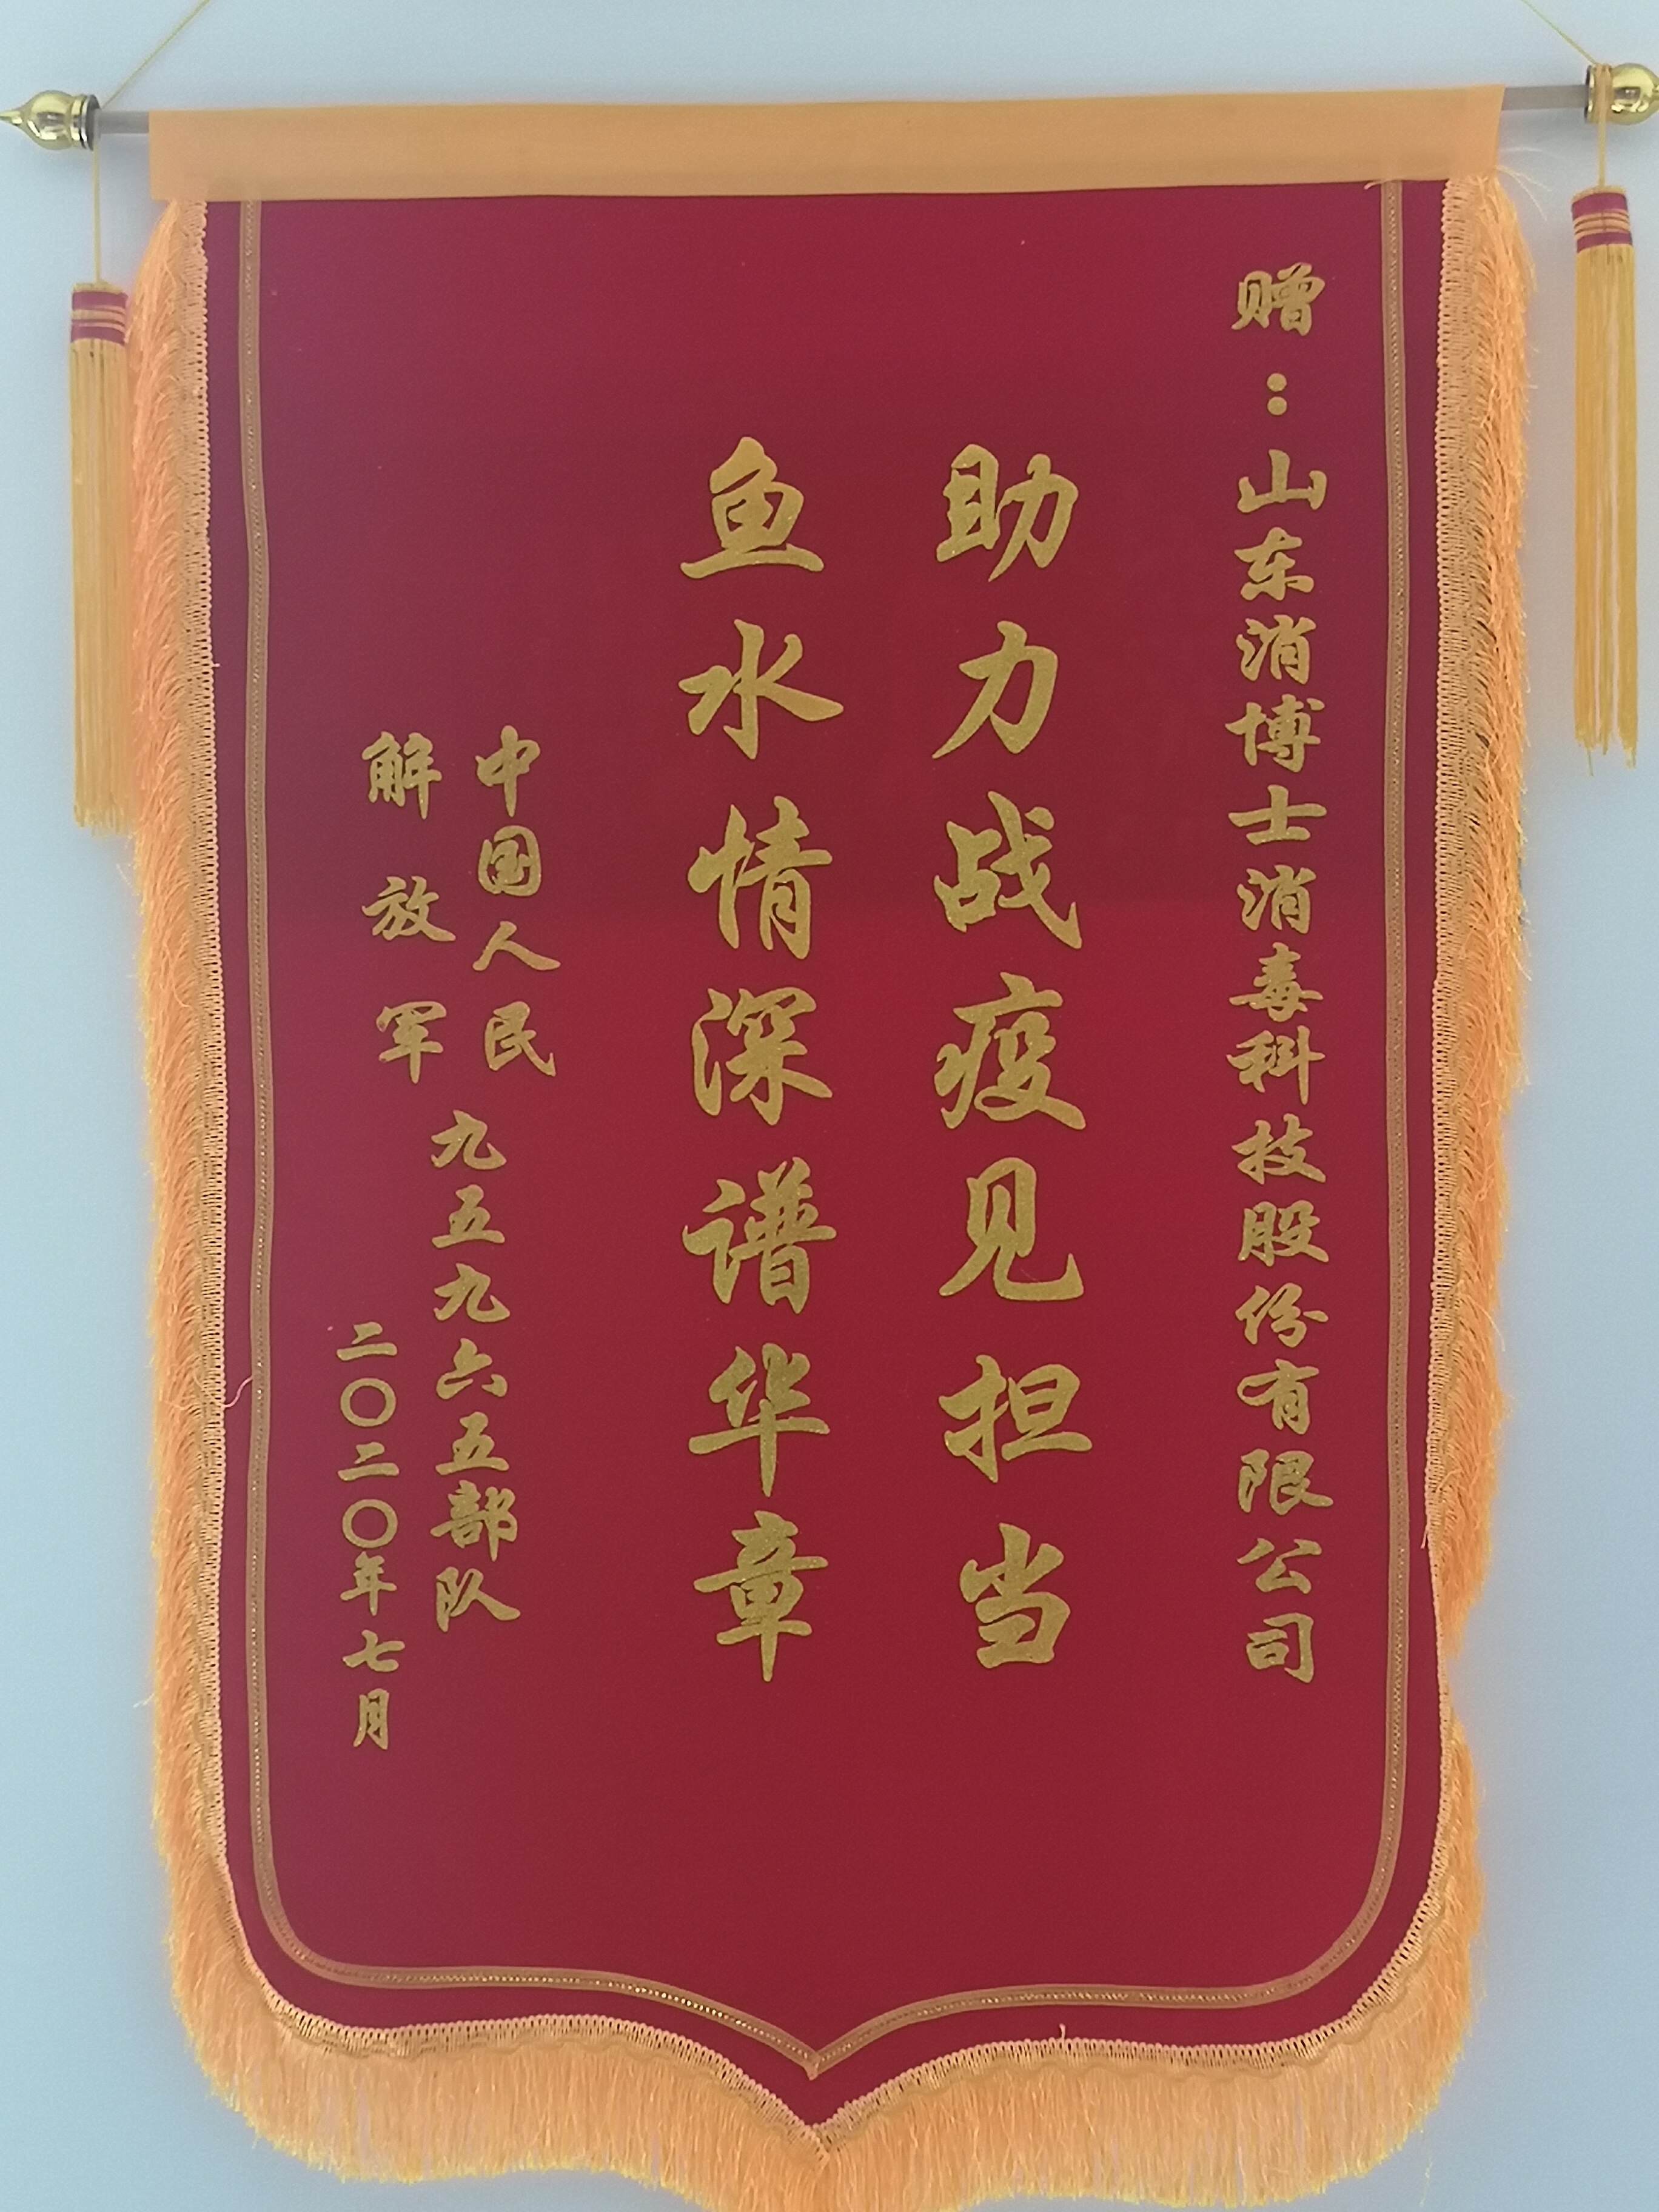 赠：山东消博士消毒科技股份有限公司
助力战疫见担当
鱼水情深谱华章
中国人民
解放军
九五九六五部队
二〇二〇年七月